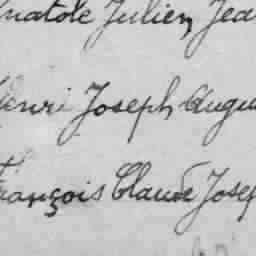 Anatole Julien Jea
Henri Joseph Augu
François Claude Josep